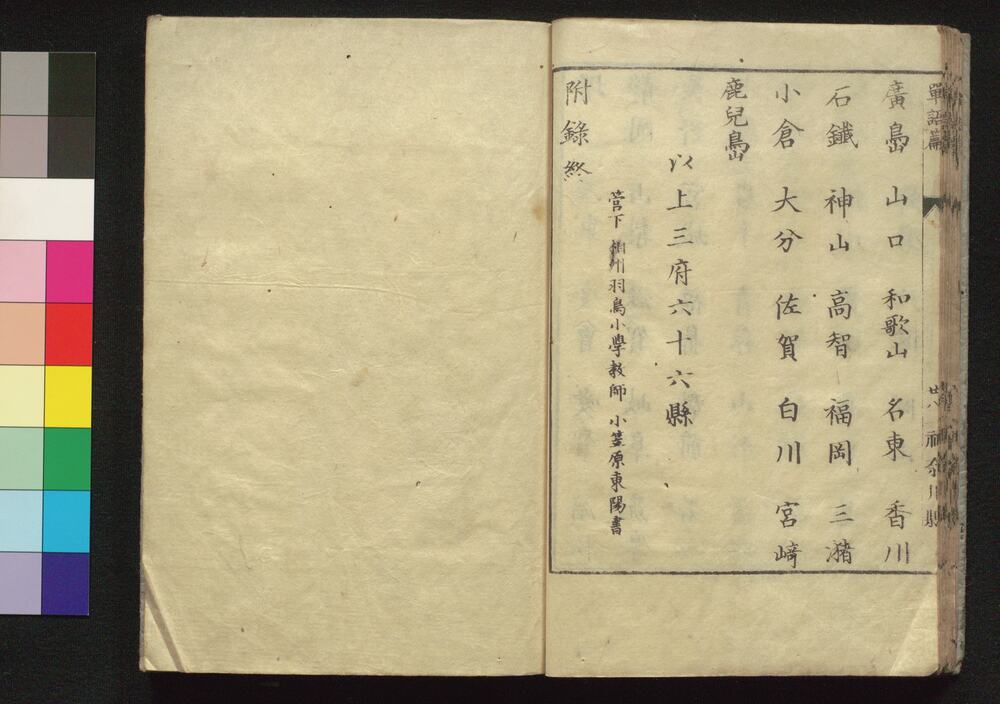 單語篇
廿八
廣島 山口 和歌山 名東 香川
石鐵 神山 高智 福岡 三潴
小倉 大分 佐賀 白川 宮﨑
鹿兒島
以上三府六十六縣
管下 州羽鳥小學教師 小笠原東陽書
附錄終